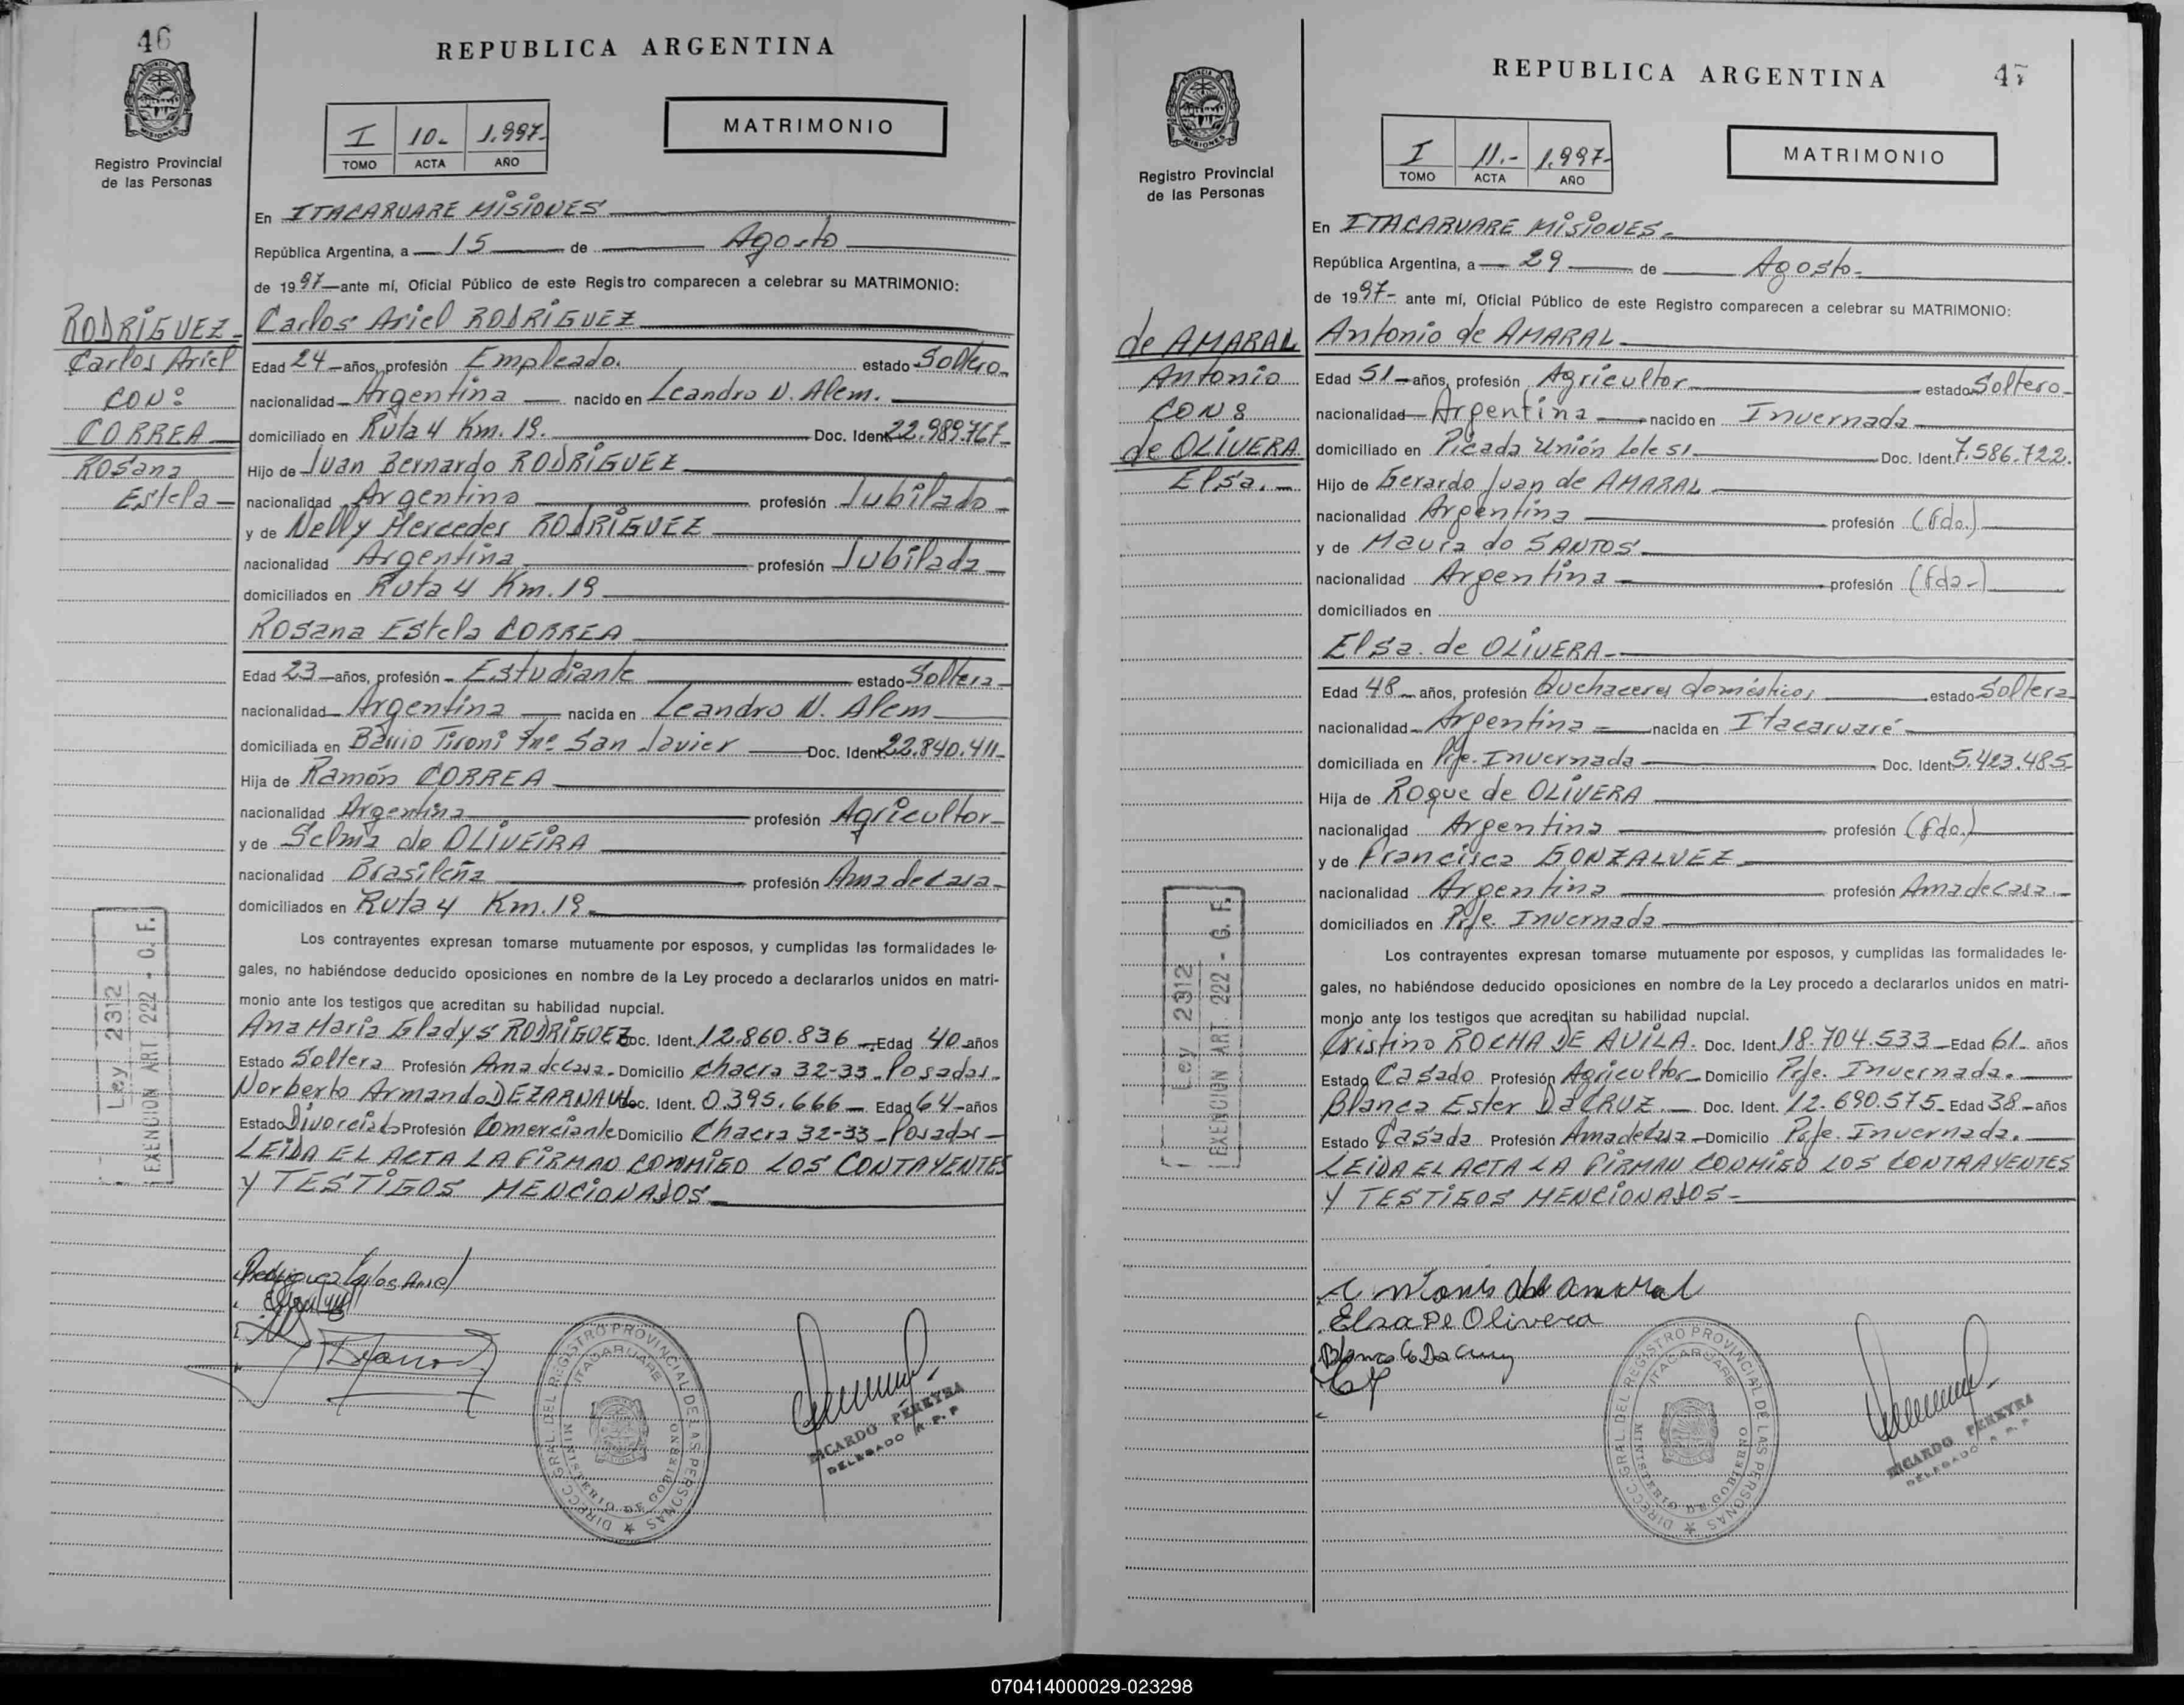 46
REPUBLICA ARGENTINA
MISIONES
Registro Provincial
de las Personas
I 10.- 1.997-
TOMO ACTA AÑO
MATRIMONIO
En ITACARUARE MiSiONES
República Argentina, a 15 de Agosto
de 1997 ante mí, Oficial Público de este Registro comparecen a celebrar su MATRIMONIO:
RODRiGUEZ-
Carlos Ariel
CON:
CORREA
Rosana
Estela-
Carlos Ariel RODRiGUEZ
Edad 24 años, profesión Empleado. estado Soltero.
nacionalidad Argentina nacido en Leandro N. Alem.
domiciliado en Ruta 4 Km. 19. Doc. Ident. 22.989.767-
Hijo de Juan Bernardo RODRiGUEZ
nacionalidad Argentina profesión Jubilado-
y de Nelly Mercedes RODRiGUEZ
nacionalidad Argentina profesión Jubilada
domiciliados en Ruta 4 Km. 19
Rosana Estela CORREA
Edad 23 años, profesión Estudiante estado Soltera
nacionalidad Argentina nacida en Leandro N. Alem
domiciliada en Barrio Tironi San Javier Doc. Ident. 22.840.411-
Hija de Ramón CORREA
nacionalidad Argentina profesión Agricultor-
y de Selma de OLiVEiRA
nacionalidad Brasileña profesión Ama de casa-
domiciliados en Ruta 4 Km. 19.
Los contrayentes expresan tomarse mutuamente por esposos, y cumplidas las formalidades le-
gales, no habiéndose deducido oposiciones en nombre de la Ley procedo a declararlos unidos en matri-
monio ante los testigos que acreditan su habilidad nupcial.
Ana Maria Gladys RODRiGUEZ Doc. Ident. 12.860.836 Edad 40 años
Estado Soltera Profesión Ama de casa- Domicilio Chacra 32-33-Posadas-
Norberto Armando DEZARNAUL Doc. Ident. 0.395.666 Edad 64 años
Estado Divorciado Profesión Comerciante Domicilio Chacra 32-33-Posadas-
LEiDA EL ACTA LA FiRMAN CONMiGO LOS CONTAYENTES
Y TESTiGOS MENCiONADOS
Ley 2312
EXENCION ART. 222 - C. F.
Rodriguez Carlos Ariel
DIRECC. GRAL. DEL REGISTRO PROVINCIAL DE LAS PERSONAS
ITACARUARE
MINISTERIO DE GOBIERNO
RICARDO PEREYRA
DELEGADO R.P.P
REPUBLICA ARGENTINA
47
MISIONES
Registro Provincial
de las Personas
I 11.- 1.997-
TOMO ACTA AÑO
MATRIMONIO
En ITACARUARE MiSiONES-
República Argentina, a 29 de Agosto-
de 1997- ante mí, Oficial Público de este Registro comparecen a celebrar su MATRIMONIO:
de AMARAL
Antonio
CON:
de OLiVERA
Elsa.-
Antonio de AMARAL
Edad 51 años, profesión Agricultor estado Soltero-
nacionalidad Argentina nacido en Invernada
domiciliado en Picada Unión Lote 51 Doc. Ident. 7.586.722.
Hijo de Gerardo Juan de AMARAL
nacionalidad Argentina profesión (fdo.)
y de Maura do SANTOS
nacionalidad Argentina profesión (fda-)
domiciliados en
Elsa. de OLiVERA-
Edad 48 años, profesión Quehaceres domésticos estado Soltera
nacionalidad Argentina nacida en Itacaruaré
domiciliada en Pje. Invernada Doc. Ident. 5.423.485-
Hija de Roque de OLiVERA
nacionalidad Argentina profesión (fdo.)
y de Francisca GONZALVEZ
nacionalidad Argentina profesión Ama de casa.-
domiciliados en Pje. Invernada
Los contrayentes expresan tomarse mutuamente por esposos, y cumplidas las formalidades le-
gales, no habiéndose deducido oposiciones en nombre de la Ley procedo a declararlos unidos en matri-
monio ante los testigos que acreditan su habilidad nupcial.
Cristino ROCHA DE AVILA- Doc. Ident. 18.704.533 Edad 61 años
Estado Casado Profesión Agricultor Domicilio Pje. Invernada.
Blanca Ester DaCRUZ. Doc. Ident. 12.690.575- Edad 38 años
Estado Casada Profesión Ama de Casa Domicilio Pje. Invernada.
LEiDA EL ACTA LA FiRMAN CONMiGO LOS CONTRAAYENTES
Y TESTiGOS MENCiONADOS-
Ley 2312
EXENCION ART. 222 - C. F.
Elsa De Olivera
Blanca E Da Cruz
DIRECC. GRAL. DEL REGISTRO PROVINCIAL DE LAS PERSONAS
ITACARUARE
MINISTERIO DE GOBIERNO
RICARDO PEREYRA
DELEGADO R.P.P
070414000029-023298